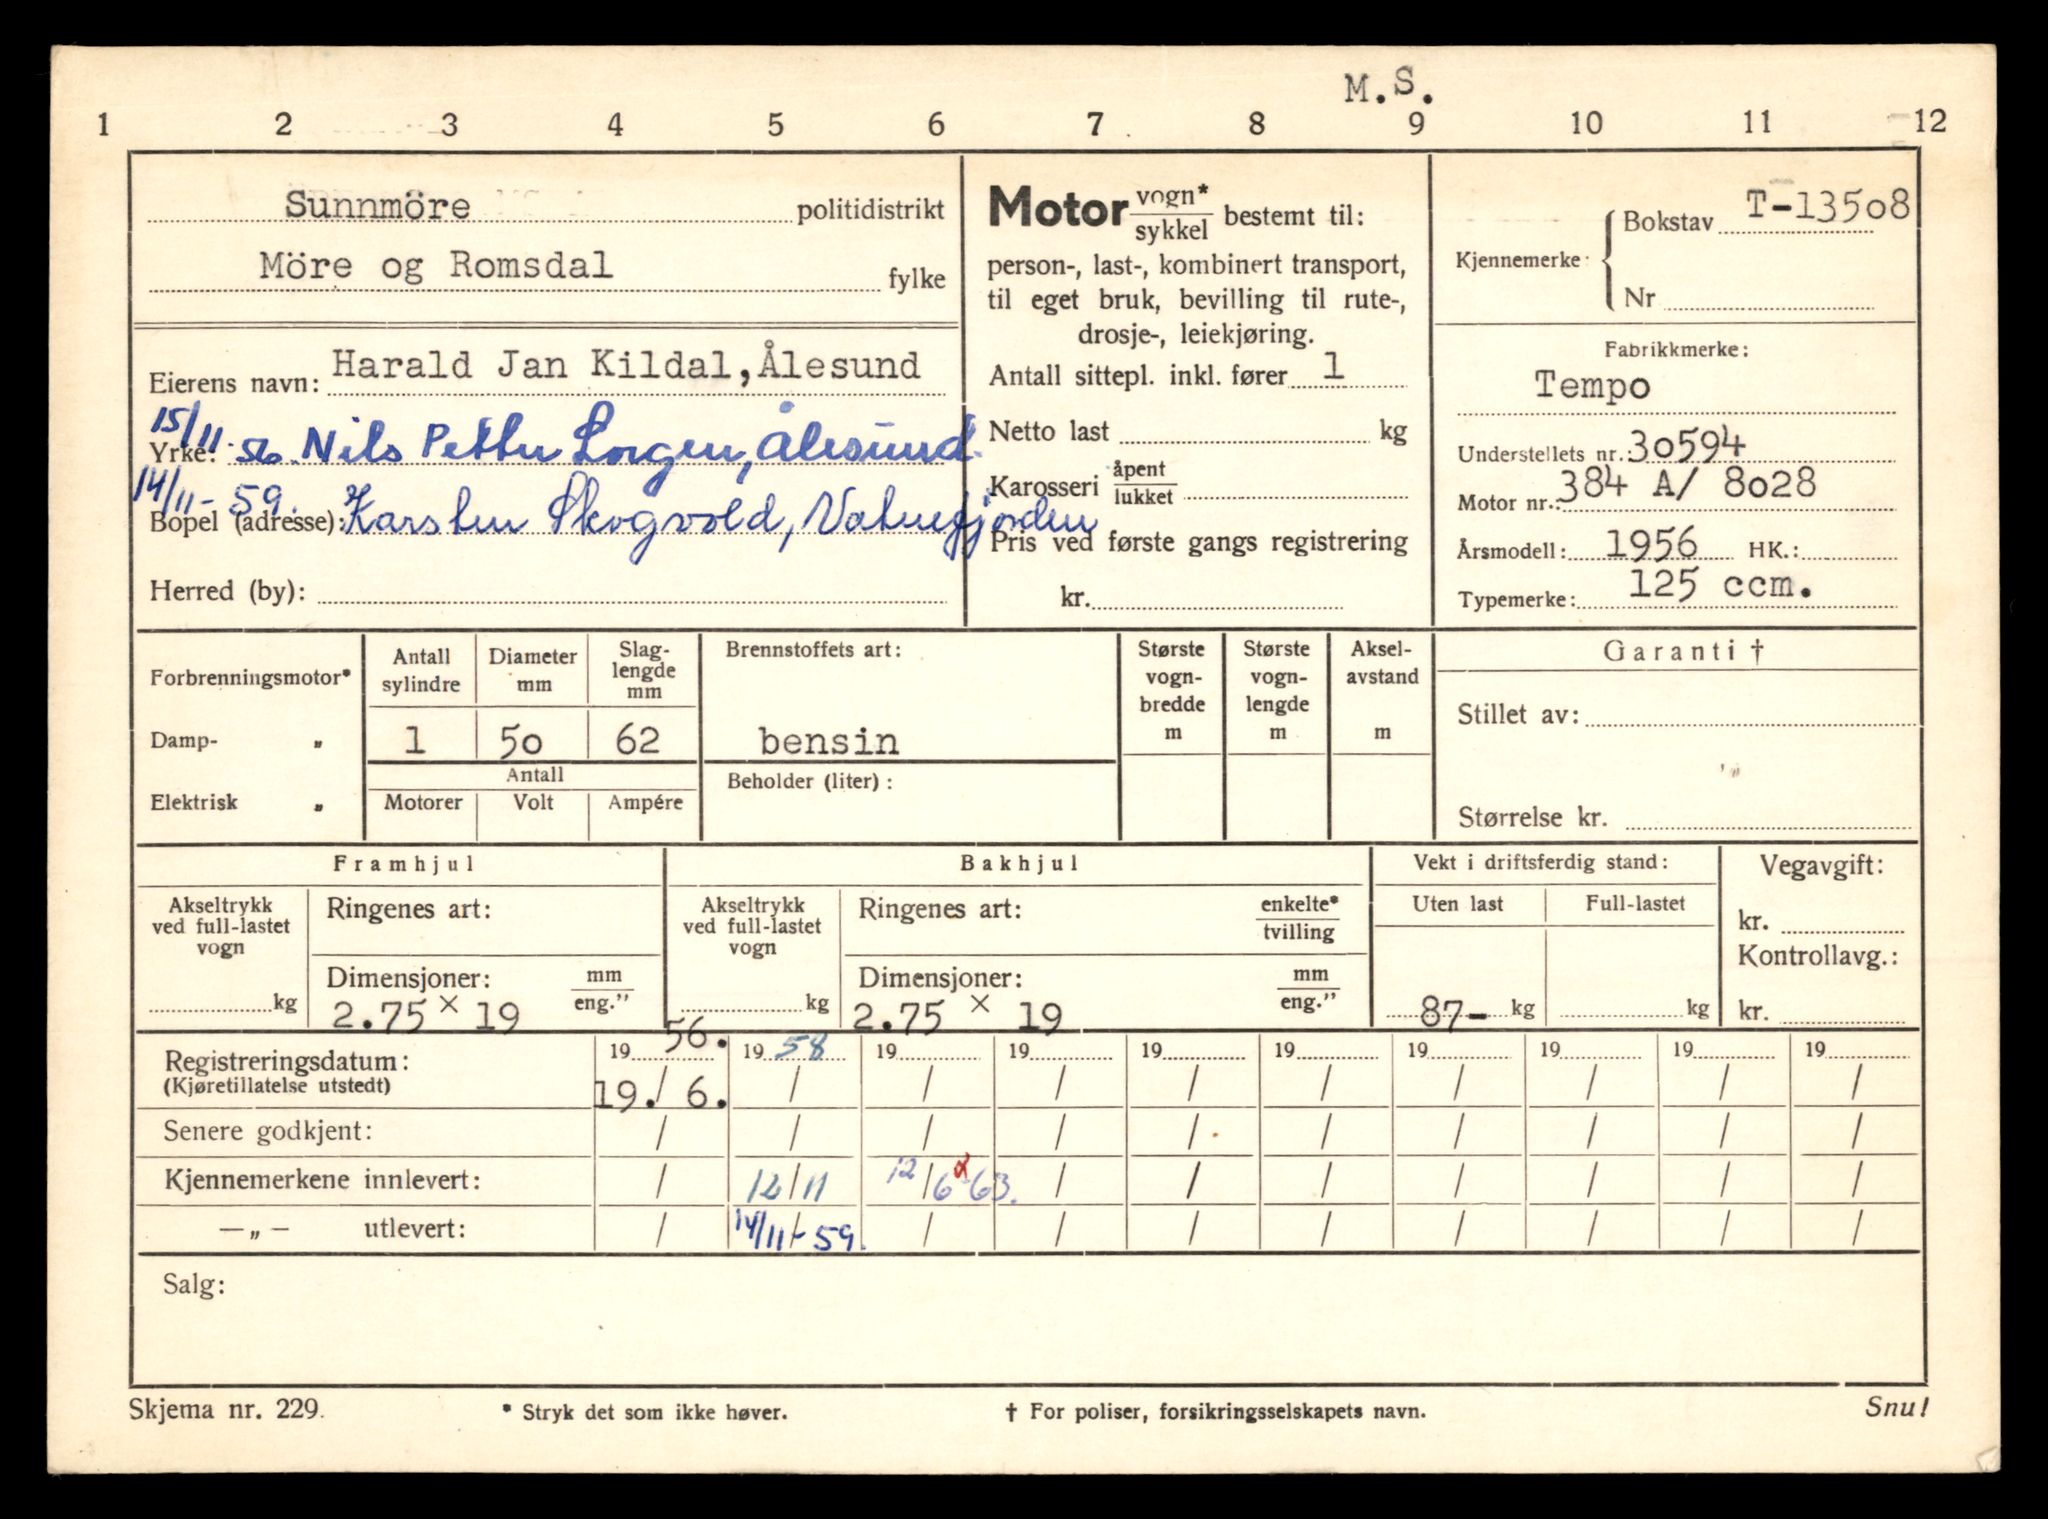 M.S.
1 2 3 4 5 6 7 8 9 10 11 12
Sunnmöre politidistrikt
Möre og Romsdal fylke
Eierens navn: Harald Jan Kildal, Ålesund
15/11-56. Nils Petter Lorgen, Ålesund.
Yrke:
14/11-59. Karsten Skogvold, Vatnefjorden
Bopel (adresse):
Herred (by):
Motor vogn*/sykkel bestemt til:
person-, last-, kombinert transport,
til eget bruk, bevilling til rute-,
drosje-, leiekjøring.
Antall sittepl. inkl. fører 1
Netto last kg
Karosseri åpent/lukket
Pris ved første gangs registrering
kr.
Kjennemerke: Bokstav T-13508
Nr
Fabrikkmerke:
Tempo
Understellets nr.: 30594
Motor nr.: 384 A/ 8028
Årsmodell: 1956 HK.:
Typemerke: 125 ccm.
Forbrenningsmotor*
Damp- „
Elektrisk „
Antall sylindre
Diameter mm
Slaglengde mm
1 50 62
Antall
Motorer Volt Ampére
Brennstoffets art:
bensin
Beholder (liter):
Største vognbredde m
Største vognlengde m
Akselavstand m
Garanti †
Stillet av:
Størrelse kr.
Framhjul
Akseltrykk ved full-lastet vogn
kg
Ringenes art:
Dimensjoner: mm/eng."
2.75 × 19
Bakhjul
Akseltrykk ved full-lastet vogn
kg
Ringenes art: enkelte*/tvilling
Dimensjoner: mm/eng."
2.75 × 19
Vekt i driftsferdig stand:
Uten last Full-lastet
87- kg kg
Vegavgift:
kr.
Kontrollavg.:
kr.
Registreringsdatum: 19 56. 19 58 19 19 19 19 19 19 19 19
(Kjøretillatelse utstedt) 19./6. / / / / / / / / /
Senere godkjent: / / / / / / / / / /
Kjennemerkene innlevert: / 12/11 12/6 63. / / / / / / /
—„— utlevert: / 14/11-59. / / / / / / / /
Salg:
Skjema nr. 229. * Stryk det som ikke høver. † For poliser, forsikringsselskapets navn. Snu!